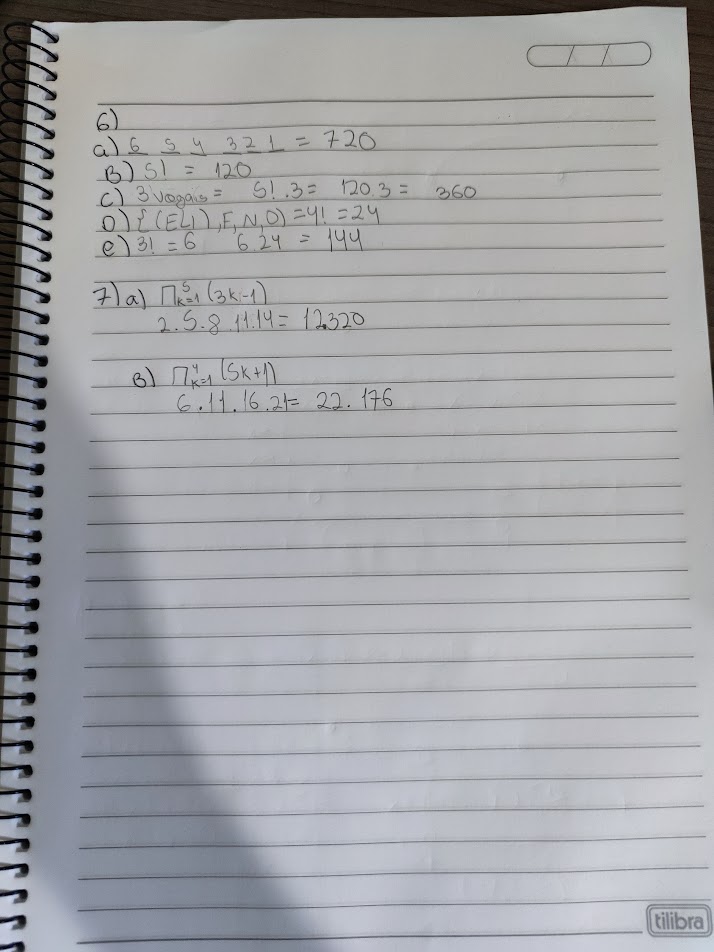 6)
a) 6 5 4 3 2 1 = 720
B) 5! = 120
C) 3 vogais = 5! . 3 = 120.3 = 360
D) {(ELI), F, N, O) = 4! = 24
e) 3! = 6 6.24 = 144
7) a) ∏⁵ₖ₌₁ (3k-1)
2.5.8.11.14 = 12.320
B) ∏⁴ₖ₌₁ (5k+1)
6.11.16.21 = 22.176
tilibra